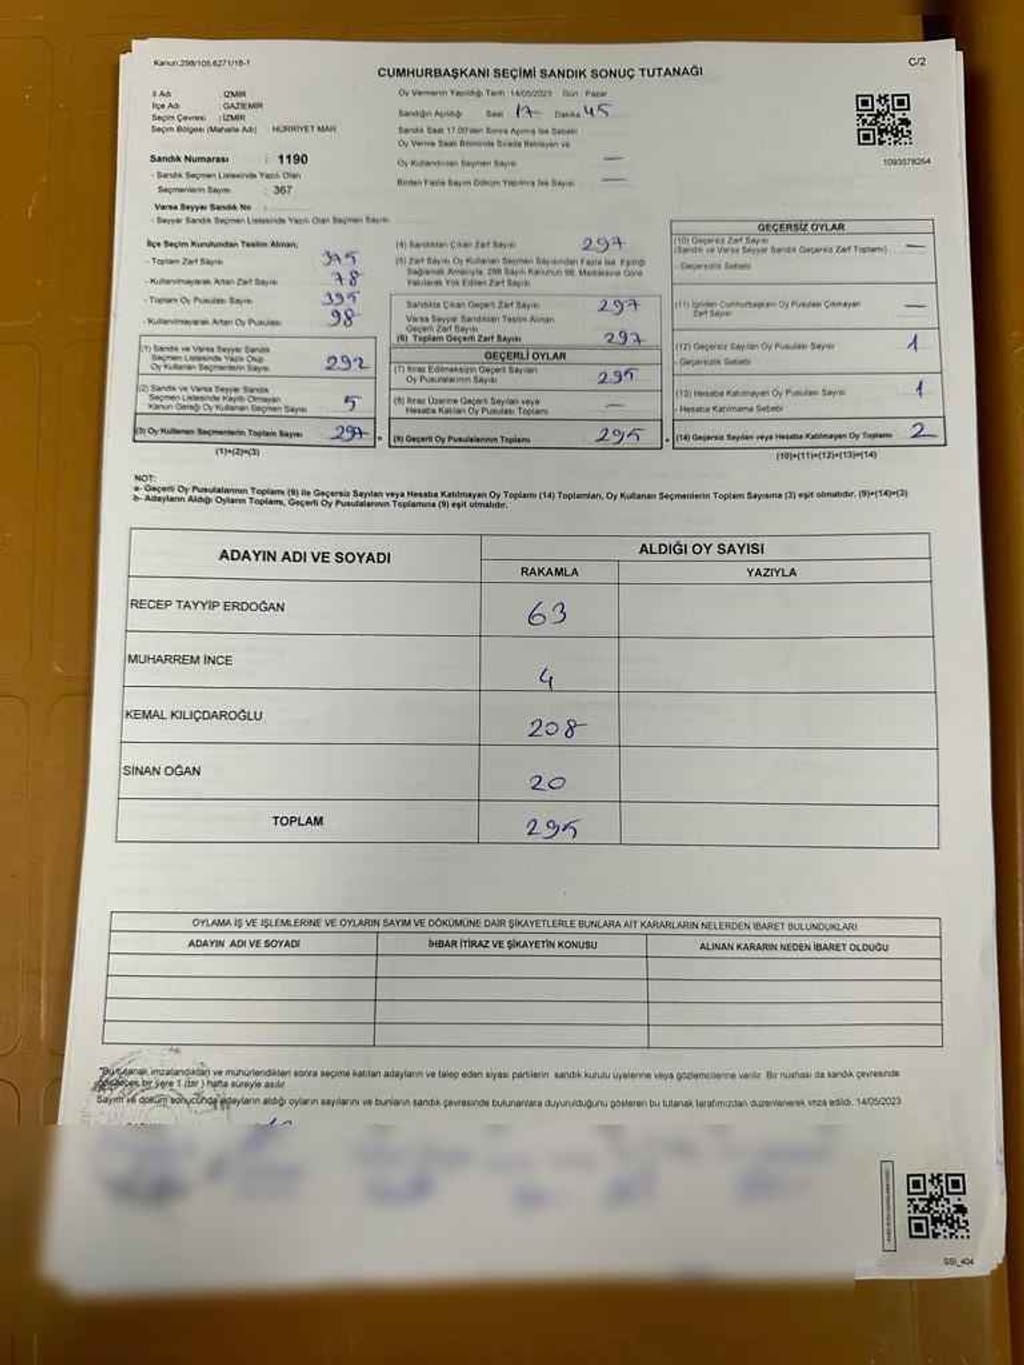 Kanun:298/105,6271/18-1
C/2
CUMHURBAŞKANI SEÇİMİ SANDIK SONUÇ TUTANAĞI
İl Adı : İZMİR
İlçe Adı : GAZİEMİR
Seçim Çevresi : İZMİR
Seçim Bölgesi (Mahalle Adı) HÜRRİYET MAH
Sandık Numarası : 1190
- Sandık Seçmen Listesinde Yazılı Olan
Seçmenlerin Sayısı : 367
Varsa Seyyar Sandık No :
- Seyyar Sandık Seçmen Listesinde Yazılı Olan Seçmen Sayısı
Oy Vermenin Yapıldığı Tarih :14/05/2023 Gün : Pazar
Sandığın Açıldığı Saat 17 Dakika 45
Sandık Saat 17.00'den Sonra Açılmış İse Sebebi
Oy Verme Saati Bitiminde Sırada Bekleyen ve
Oy Kullandırılan Seçmen Sayısı —
Birden Fazla Sayım Döküm Yapılmış İse Sayısı —
1093578264
İlçe Seçim Kurulundan Teslim Alınan;
- Toplam Zarf Sayısı 375
- Kullanılmayarak Artan Zarf Sayısı 78
- Toplam Oy Pusulası Sayısı 395
- Kullanılmayarak Artan Oy Pusulası 98
(1) Sandık ve Varsa Seyyar Sandık
Seçmen Listesinde Yazılı Olup
Oy Kullanan Seçmenlerin Sayısı 292
(2) Sandık ve Varsa Seyyar Sandık
Seçmen Listesinde Kayıtlı Olmayan
Kanun Gereği Oy Kullanan Seçmen Sayısı 5
(3) Oy Kullanan Seçmenlerin Toplam Sayısı 297
(1)+(2)=(3)
(4) Sandıktan Çıkan Zarf Sayısı 297
(5) Zarf Sayısı Oy Kullanan Seçmen Sayısından Fazla İse, Eşitliği
Sağlamak Amacıyla, 298 Sayılı Kanunun 98. Maddesine Göre
Yakılarak Yok Edilen Zarf Sayısı
Sandıkta Çıkan Geçerli Zarf Sayısı 297
Varsa Seyyar Sandıktan Teslim Alınan
Geçerli Zarf Sayısı
(6) Toplam Geçerli Zarf Sayısı 297
GEÇERLİ OYLAR
(7) İtiraz Edilmeksizin Geçerli Sayılan
Oy Pusulalarının Sayısı 295
(8) İtiraz Üzerine Geçerli Sayılan veya
Hesaba Katılan Oy Pusulası Toplamı —
(9) Geçerli Oy Pusulalarının Toplamı 295
GEÇERSİZ OYLAR
(10) Geçersiz Zarf Sayısı —
(Sandık ve Varsa Seyyar Sandık Geçersiz Zarf Toplamı)
- Geçersizlik Sebebi
(11) İçinden Cumhurbaşkanı Oy Pusulası Çıkmayan
Zarf Sayısı —
(12) Geçersiz Sayılan Oy Pusulası Sayısı 1
- Geçersizlik Sebebi
(13) Hesaba Katılmayan Oy Pusulası Sayısı 1
- Hesaba Katılmama Sebebi
(14) Geçersiz Sayılan veya Hesaba Katılmayan Oy Toplamı 2
(10)+(11)+(12)+(13)=(14)
NOT:
a- Geçerli Oy Pusulalarının Toplamı (9) ile Geçersiz Sayılan veya Hesaba Katılmayan Oy Toplamı (14) Toplamları, Oy Kullanan Seçmenlerin Toplam Sayısına (3) eşit olmalıdır. (9)+(14)=(3)
b- Adayların Aldığı Oyların Toplamı, Geçerli Oy Pusulalarının Toplamına (9) eşit olmalıdır.
ADAYIN ADI VE SOYADI
ALDIĞI OY SAYISI
RAKAMLA YAZIYLA
RECEP TAYYİP ERDOĞAN 63
MUHARREM İNCE 4
KEMAL KILIÇDAROĞLU 208
SİNAN OĞAN 20
TOPLAM 295
OYLAMA İŞ VE İŞLEMLERİNE VE OYLARIN SAYIM VE DÖKÜMÜNE DAİR ŞİKAYETLERLE BUNLARA AİT KARARLARIN NELERDEN İBARET BULUNDUKLARI
ADAYIN ADI VE SOYADI İHBAR İTİRAZ VE ŞİKAYETİN KONUSU ALINAN KARARIN NEDEN İBARET OLDUĞU
*Bu tutanak imzalandıktan ve mühürlendikten sonra seçime katılan adayların ve talep eden siyasi partilerin sandık kurulu üyelerine veya gözlemcilerine verilir. Bir nüshası da sandık çevresinde
bir yere 1 (bir) hafta süreyle asılır
Sayım ve döküm sonucunda adayların aldığı oyların sayılarını ve bunların sandık çevresinde bulunanlara duyurulduğunu gösteren bu tutanak tarafımızdan düzenlenerek imza edildi. 14/05/2023
SSI_404